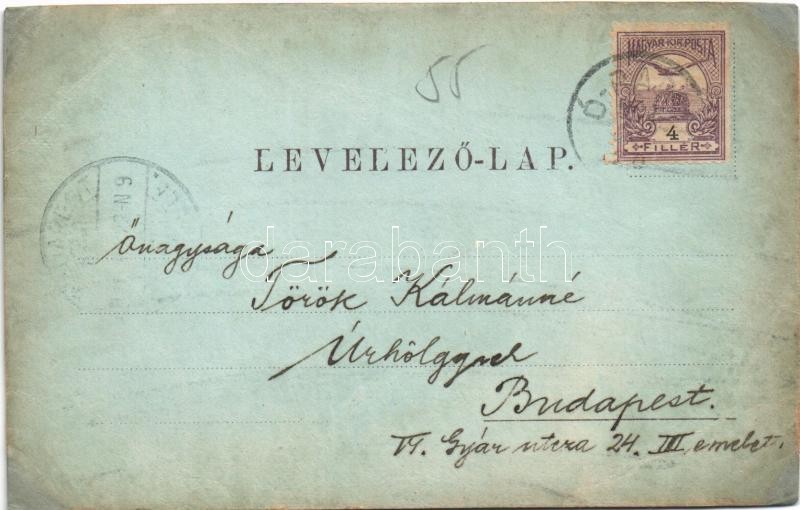 55
MAGYAR KIR. POSTA
4
FILLÉR
LEVELEZŐ-LAP.
Őnagysága
darabanth
Török Kálmánné
Úrhölgynek
Budapest.
VI. Gyár utcza 24. III emelet.